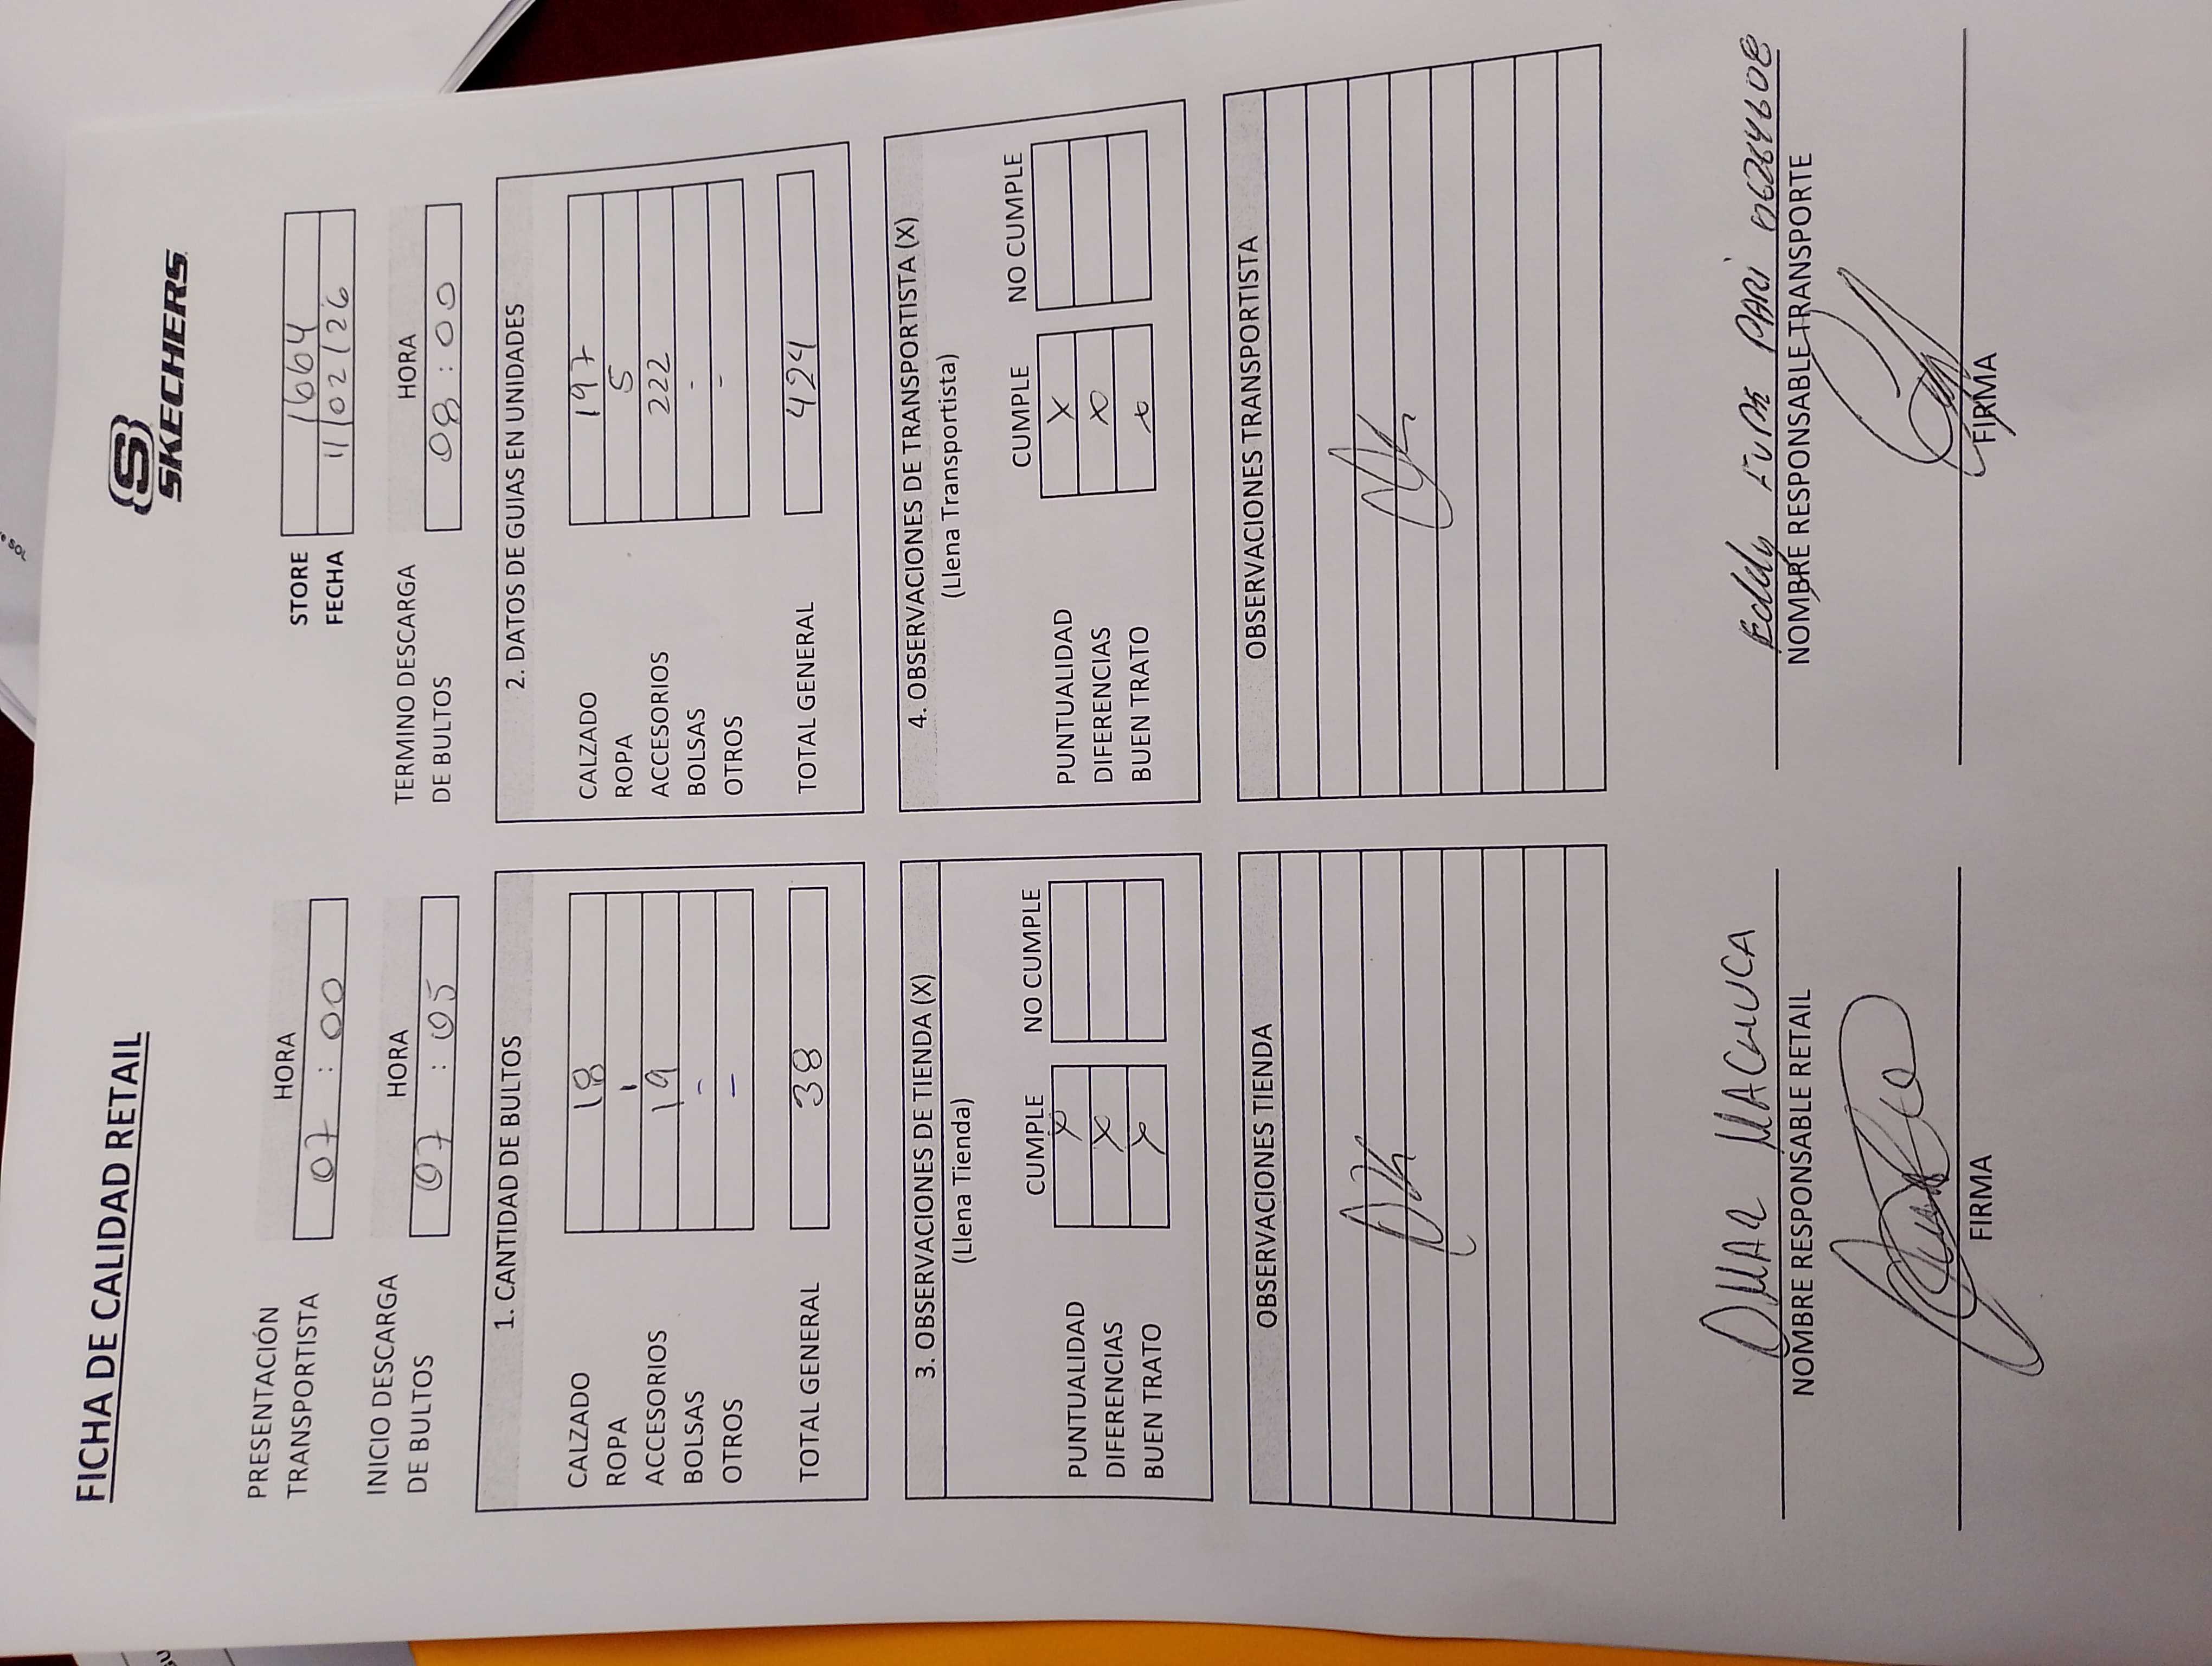 FICHA DE CALIDAD RETAIL
SKECHERS
STORE 1664
FECHA 11/02/26
PRESENTACIÓN TRANSPORTISTA
HORA
07:00
INICIO DESCARGA DE BULTOS
HORA
07:05
TERMINO DESCARGA DE BULTOS
HORA
08:00
1. CANTIDAD DE BULTOS
CALZADO 18
ROPA 1
ACCESORIOS 19
BOLSAS -
OTROS -
TOTAL GENERAL 38
2. DATOS DE GUIAS EN UNIDADES
CALZADO 197
ROPA 5
ACCESORIOS 222
BOLSAS -
OTROS -
TOTAL GENERAL 424
3. OBSERVACIONES DE TIENDA (X)
(Llena Tienda)
CUMPLE NO CUMPLE
PUNTUALIDAD X
DIFERENCIAS X
BUEN TRATO X
4. OBSERVACIONES DE TRANSPORTISTA (X)
(Llena Transportista)
CUMPLE NO CUMPLE
PUNTUALIDAD X
DIFERENCIAS X
BUEN TRATO X
OBSERVACIONES TIENDA
OBSERVACIONES TRANSPORTISTA
OMAR MACHUCA
NOMBRE RESPONSABLE RETAIL
FIRMA
Eddy PARI
NOMBRE RESPONSABLE TRANSPORTE
FIRMA